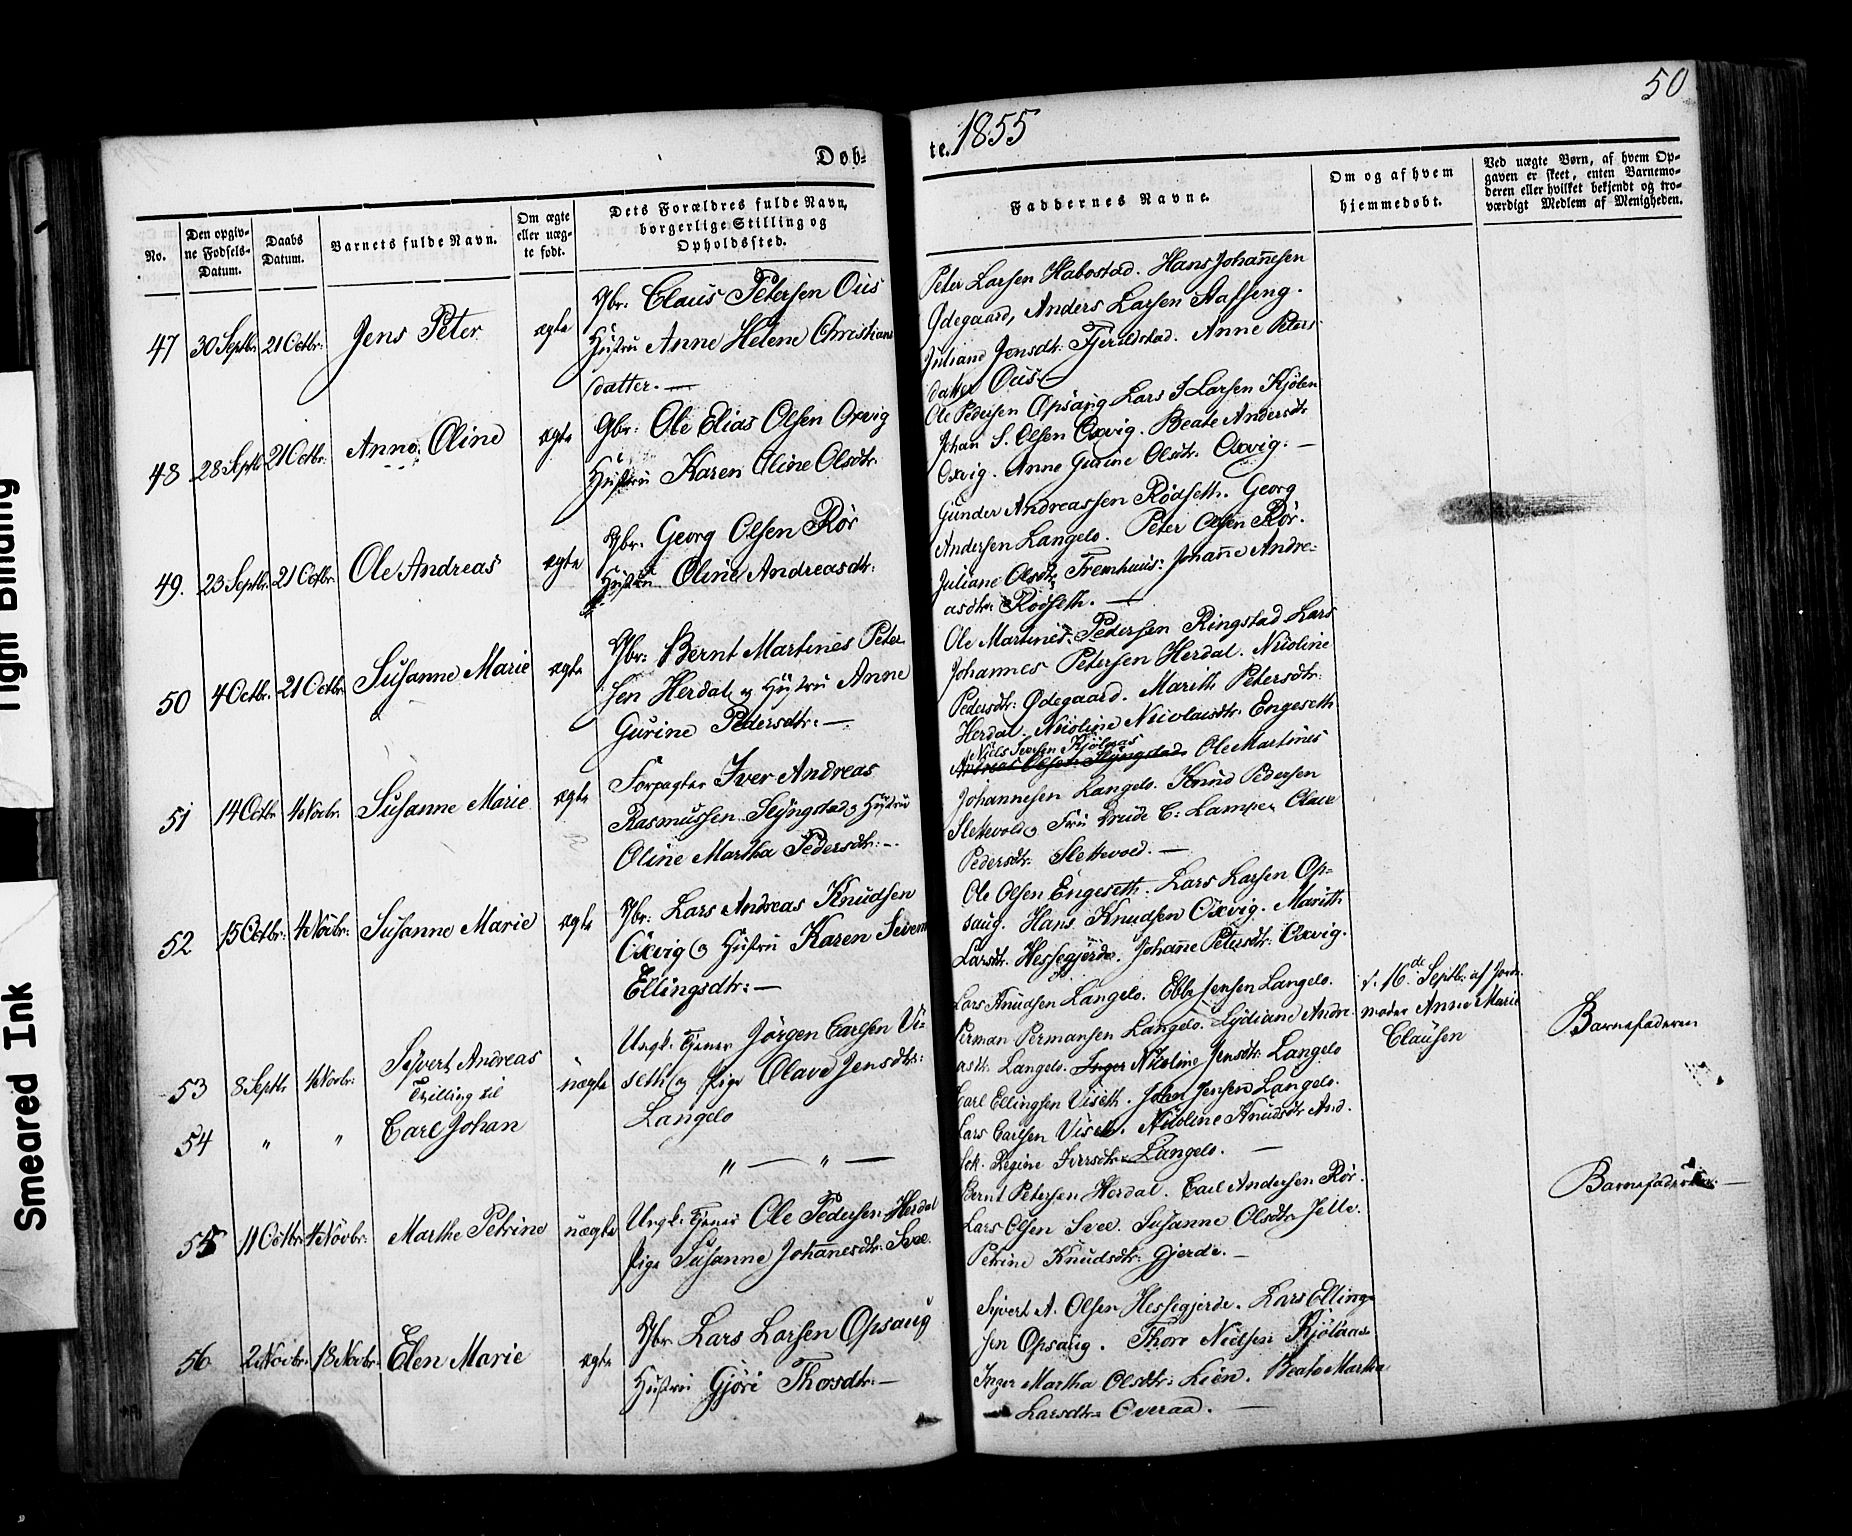 50
Døb-
te. 1855
No.
Den opgiv-
ne Fødsels-
Datum.
Daabs
Datum.
Barnets fulde Navn.
Om ægte
eller uæg-
te født.
Dets Forældres fulde Navn,
borgerlige Stilling og
Opholdssted.
Faddernes Navne.
Om og af hvem
hjemmedøbt.
Ved uægte Børn, af hvem Op-
gaven er skeet, enten Barnemo-
deren eller hvilket bekjendt og tro-
værdigt Medlem af Menigheden.
47 30 Septbr. 21 Octbr: Jens Peter ægte
Gbr: Claus Petersen Ous
Hustru Anne Helene Christians
datter. —
Peter Larsen Habostad. Hans Johannesen
Ødegaard, Anders Larsen Aasseng.
Juliane Jensdtr: Fjeldstad. Anne Peters
datter Ous —
48 28 Septb 21 Octbr: Anne Oline ægte
Gbr: Ole Elias Olsen Oxvig
Hustru Karen Oline Olsdtr.
Ole Pedersen Opsaug Lars I Larsen Kjølen
Johan S. Olsen Oxvig. Beate Andersdtr
Oxvig. Anne Gurine Olsdtr. Oxvig. —
49. 23 Septbr. 21 Octbr. Ole Andreas ægte
Gbr. Georg Olsen Rør
Hustru Oline Andreasdtr:
Gunder Andreassen Rødseth. Georg
Andersen Langelo. Peter Olsen Rør.
Juliane Olsdtr Fremhuus: Johanne Andre-
asdtr: Rødseth. —
50 4 Octbr. 21 Octbr Susanne Marie ægte
Gbr: Bernt Martines Peter
sen Herdal og Hustru Anne
Gurine Pedersdtr: —
Ole Martines Pedersen Ringstad Lars
Johannes Petersen Herdal. Nicoline
Pedersdtr: Ødegaard. Marith Petersdtr:
Herdal. Nicoline Nicolaisdtr. Engeseth
51 14 Octbr 4 Novbr. Susanne Marie ægte
Forpagter Iver Andreas
Rasmussen Slyngstad og Hustru
Oline Martha Pedersdtr: —
Niels Iversen Kjølaas
Andreas Olsen Slyngstad Ole Martines
Johannesen Langelo. Knud Pedersen
Slettevold, Fru Drude C: Lampe, Olave
Pedersdtr: Slettevold. —
52 15 Octbr: 4 Novbr: Susanne Marie ægte
Gbr: Lars Andreas Knudsen
Oxvig og Hustru Karen Severine
Ellingsdtr: —
Ole Olsen Engeseth. Lars Larsen Op-
saug. Hans Knudsen Oxvig. Marith
Larsdtr. Hessegjerde. Johanne Petersdtr: Oxvig.
53 8 Septbr 4 Novbr: Syvert Andreas
Tvilling til
uægte
Ungk. Tjener Jørgen Carlsen Vi-
seth og Pige Olave Jensdtr:
Langelo
Lars Knudsen Langelo. Ebbe Jensen Langelo.
Perman Permansen Langelo. Lydiane Andre
asdtr. Langelo. Inger Nicoline Jensdtr. Langelo
d. 16de Septbr. af Jord-
moder Anne Marie
Clausen
Barnefaderen
54 " " Carl Johan
" — " —
Karl Ellingsen Viseth. John Jensen Langelo.
Lars Carlsen Viseth. Nicoline Knudsdtr And.
Sek. Regine Iversdtr. Langelo. —
55 11 Octbr 4 Novbr: Marthe Petrine uægte
Ungk. Tjener Ole Pedersen Herdal
Pige Susanne Johannesdtr. Svee.
Bernt Petersen Herdal. Carl Andersen Rør.
Lars Olsen Svee. Susanne Olsdtr Jelle.
Petrine Knudsdtr: Gjerde. —
Barnefaderen: —
56 2 Novbr. 18 Novbr. Elen Marie ægte
Gbr Lars Larsen Opsaug
Hustru Gjøri Thorsdtr: —
Syvert A. Olsen Hessegjerde. Lars Elling-
sen Opsaug. Thore Nielsen Kjølaas
Inger Martha Olsdtr: Lien. Beate Martha
Larsdtr. Overaa. —
Tight Binding
Smeared Ink